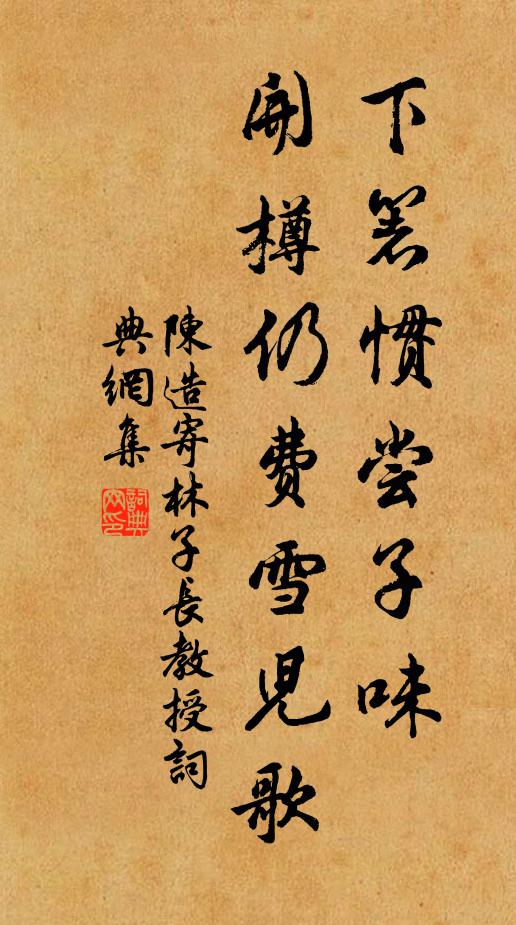 下箸慣尝子味
開樽仍費雪児歌
陳造寄林子長教授詞
典網集
詞典网印